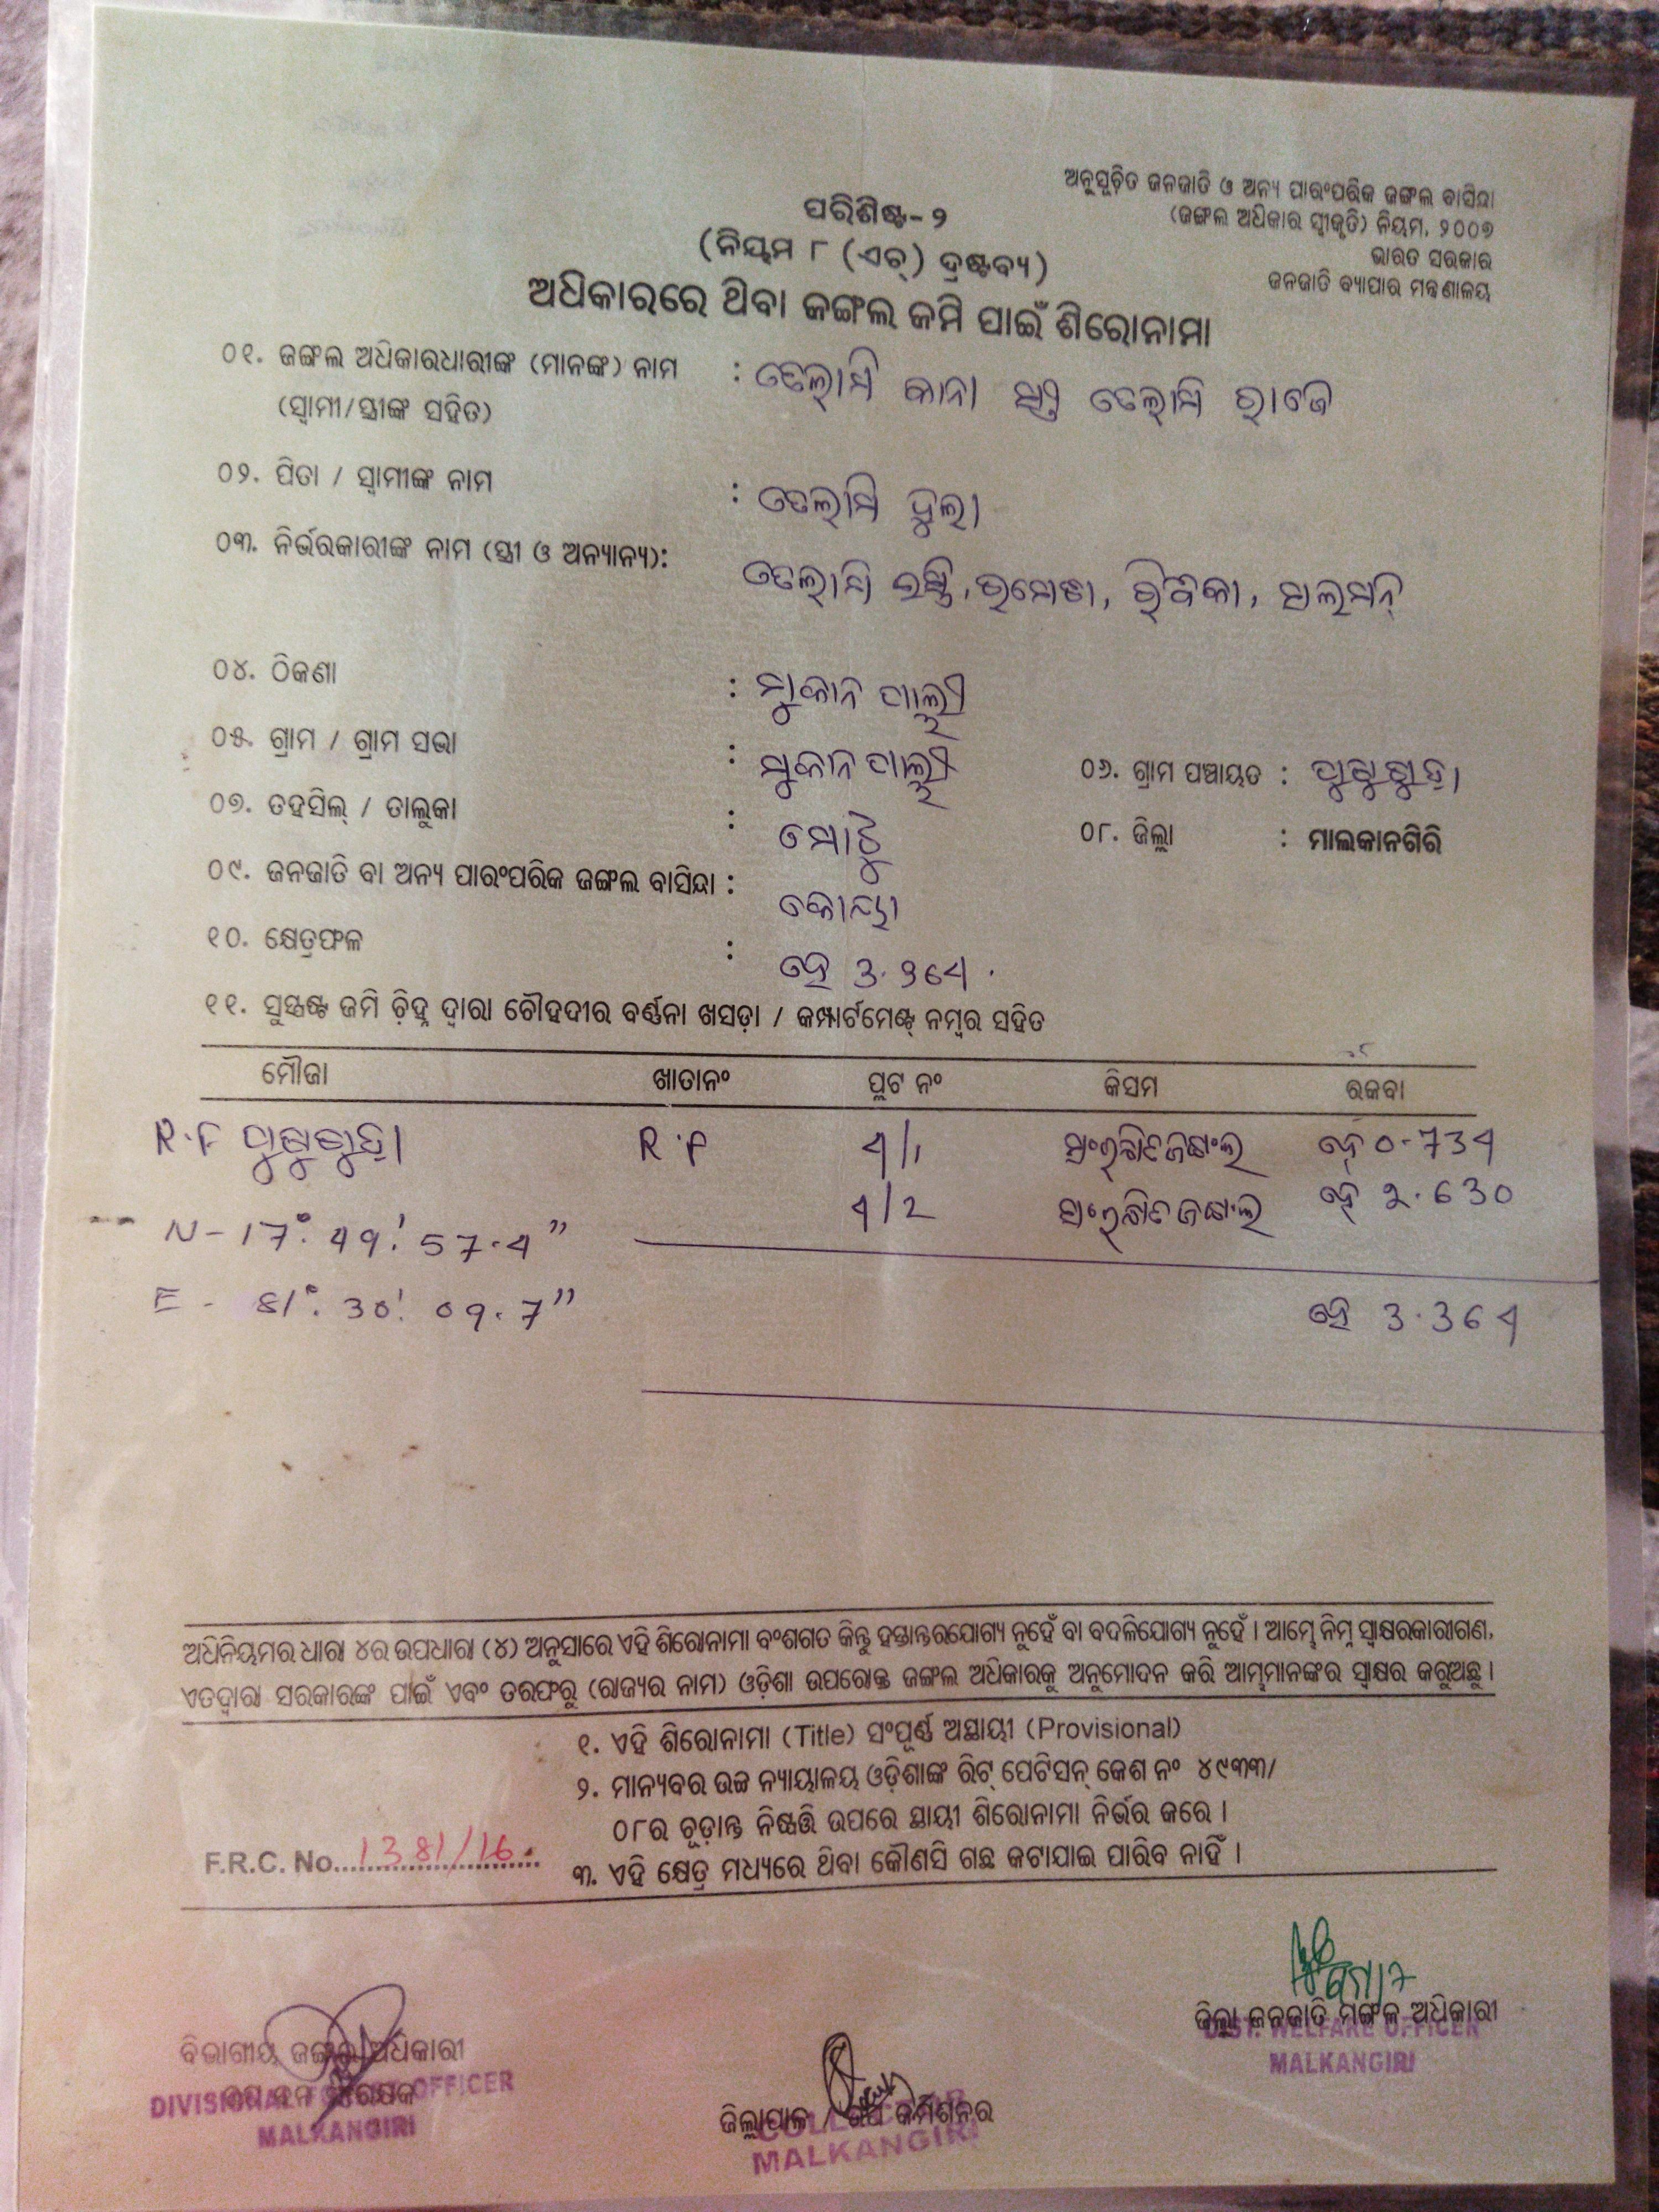 ଅନୁସୂଚିତ ଜନଜାତି ଓ ଅନ୍ୟ ପାରଂପରିକ ଜଙ୍ଗଲ ବାସିନ୍ଦା
(ଜଙ୍ଗଲ ଅଧିକାର ସ୍ୱୀକୃତି) ନିୟମ, ୨୦୦୭
ଭାରତ ସରକାର
ଜନଜାତି ବ୍ୟାପାର ମନ୍ତ୍ରଣାଳୟ
ପରିଶିଷ୍ଟ-୨
(ନିୟମ ୮ (ଏଚ୍) ଦ୍ରଷ୍ଟବ୍ୟ)
ଅଧିକାରରେ ଥିବା ଜଙ୍ଗଲ ଜମି ପାଇଁ ଶିରୋନାମା
୦୧. ଜଙ୍ଗଲ ଅଧିକାରଧାରୀଙ୍କ (ମାନଙ୍କ) ନାମ :
(ସ୍ୱାମୀ/ସ୍ତ୍ରୀଙ୍କ ସହିତ)
୦୨. ପିତା / ସ୍ୱାମୀଙ୍କ ନାମ :
୦୩. ନିର୍ଭରକାରୀଙ୍କ ନାମ (ସ୍ତ୍ରୀ ଓ ଅନ୍ୟାନ୍ୟ):
୦୪. ଠିକଣା : ମୁକାନ ପାଲ୍ଲୀ
୦୫. ଗ୍ରାମ / ଗ୍ରାମ ସଭା : ମୁକାନପାଲ୍ଲୀ ୦୬. ଗ୍ରାମ ପଞ୍ଚାୟତ :
୦୭. ତହସିଲ୍ / ତାଲୁକା : ମୋଟୁ ୦୮. ଜିଲ୍ଲା : ମାଲକାନଗିରି
୦୯. ଜନଜାତି ବା ଅନ୍ୟ ପାରଂପରିକ ଜଙ୍ଗଲ ବାସିନ୍ଦା : କୋୟା
୧୦. କ୍ଷେତ୍ରଫଳ : ହେ 3.364
୧୧. ସୁସ୍ପଷ୍ଟ ଜମି ଚିହ୍ନ ଦ୍ୱାରା ଚୌହଦୀର ବର୍ଣ୍ଣନା ଖସଡ଼ା / କମ୍ପାର୍ଟମେଣ୍ଟ୍ ନମ୍ବର ସହିତ
ମୌଜା ଖାତାନଂ ପ୍ଲଟ ନଂ କିସମ ରକବା
R.F R.F 4/1 ସଂରକ୍ଷିତ ଜଙ୍ଗଲ ହେ 0.734
4/2 ସଂରକ୍ଷିତ ଜଙ୍ଗଲ ହେ 2.630
N - 17°. 49'. 57.4"
E - 81°. 30'. 09.7" ହେ 3.364
ଅଧିନିୟମର ଧାରା ୪ର ଉପଧାରା (୪) ଅନୁସାରେ ଏହି ଶିରୋନାମା ବଂଶଗତ କିନ୍ତୁ ହସ୍ତାନ୍ତରଯୋଗ୍ୟ ନୁହେଁ ବା ବଦଳିଯୋଗ୍ୟ ନୁହେଁ । ଆମ୍ଭେ ନିମ୍ନ ସ୍ୱାକ୍ଷରକାରୀଗଣ,
ଏତଦ୍ୱାରା ସରକାରଙ୍କ ପାଇଁ ଏବଂ ତରଫରୁ (ରାଜ୍ୟର ନାମ) ଓଡ଼ିଶା ଉପରୋକ୍ତ ଜଙ୍ଗଲ ଅଧିକାରକୁ ଅନୁମୋଦନ କରି ଆମ୍ଭମାନଙ୍କର ସ୍ୱାକ୍ଷର କରୁଅଛୁ ।
୧. ଏହି ଶିରୋନାମା (Title) ସଂପୂର୍ଣ୍ଣ ଅସ୍ଥାୟୀ (Provisional)
୨. ମାନ୍ୟବର ଉଚ୍ଚ ନ୍ୟାୟାଳୟ ଓଡ଼ିଶାଙ୍କ ରିଟ୍ ପେଟିସନ୍ କେଶ ନଂ ୪୯୩୩/
୦୮ର ଚୂଡ଼ାନ୍ତ ନିଷ୍ପତ୍ତି ଉପରେ ସ୍ଥାୟୀ ଶିରୋନାମା ନିର୍ଭର କରେ ।
F.R.C. No. 1381/16
୩. ଏହି କ୍ଷେତ୍ର ମଧ୍ୟରେ ଥିବା କୌଣସି ଗଛ କଟାଯାଇ ପାରିବ ନାହିଁ ।
ଜିଲ୍ଲା ଜନଜାତି ମଙ୍ଗଳ ଅଧିକାରୀ
DIST. WELFARE OFFICER
MALKANGIRI
ବିଭାଗୀୟ ଜଙ୍ଗଲ ଅଧିକାରୀ
DIVISIONAL FOREST OFFICER
MALKANGIRI
ଜିଲ୍ଲାପାଳ /
COLLECTOR
MALKANGIRI